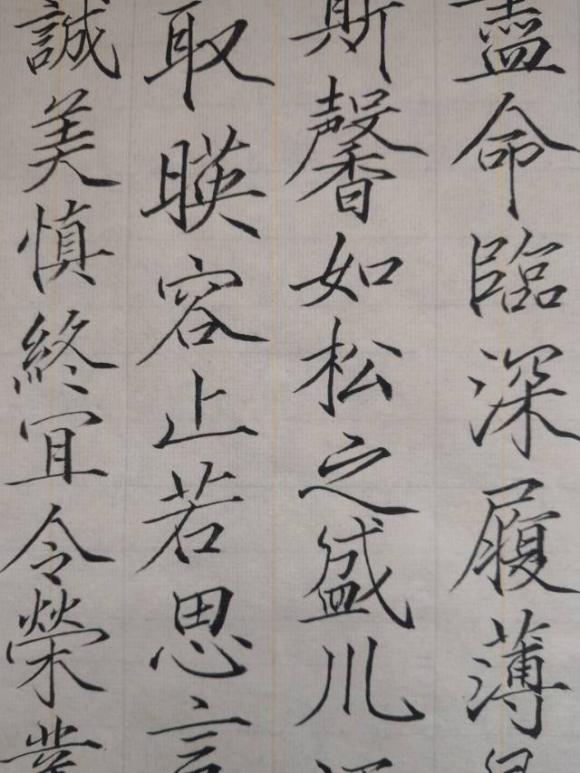 盡命臨深履薄
斯馨如松之盛川
取暎容止若思言
誠美慎終宜令榮業